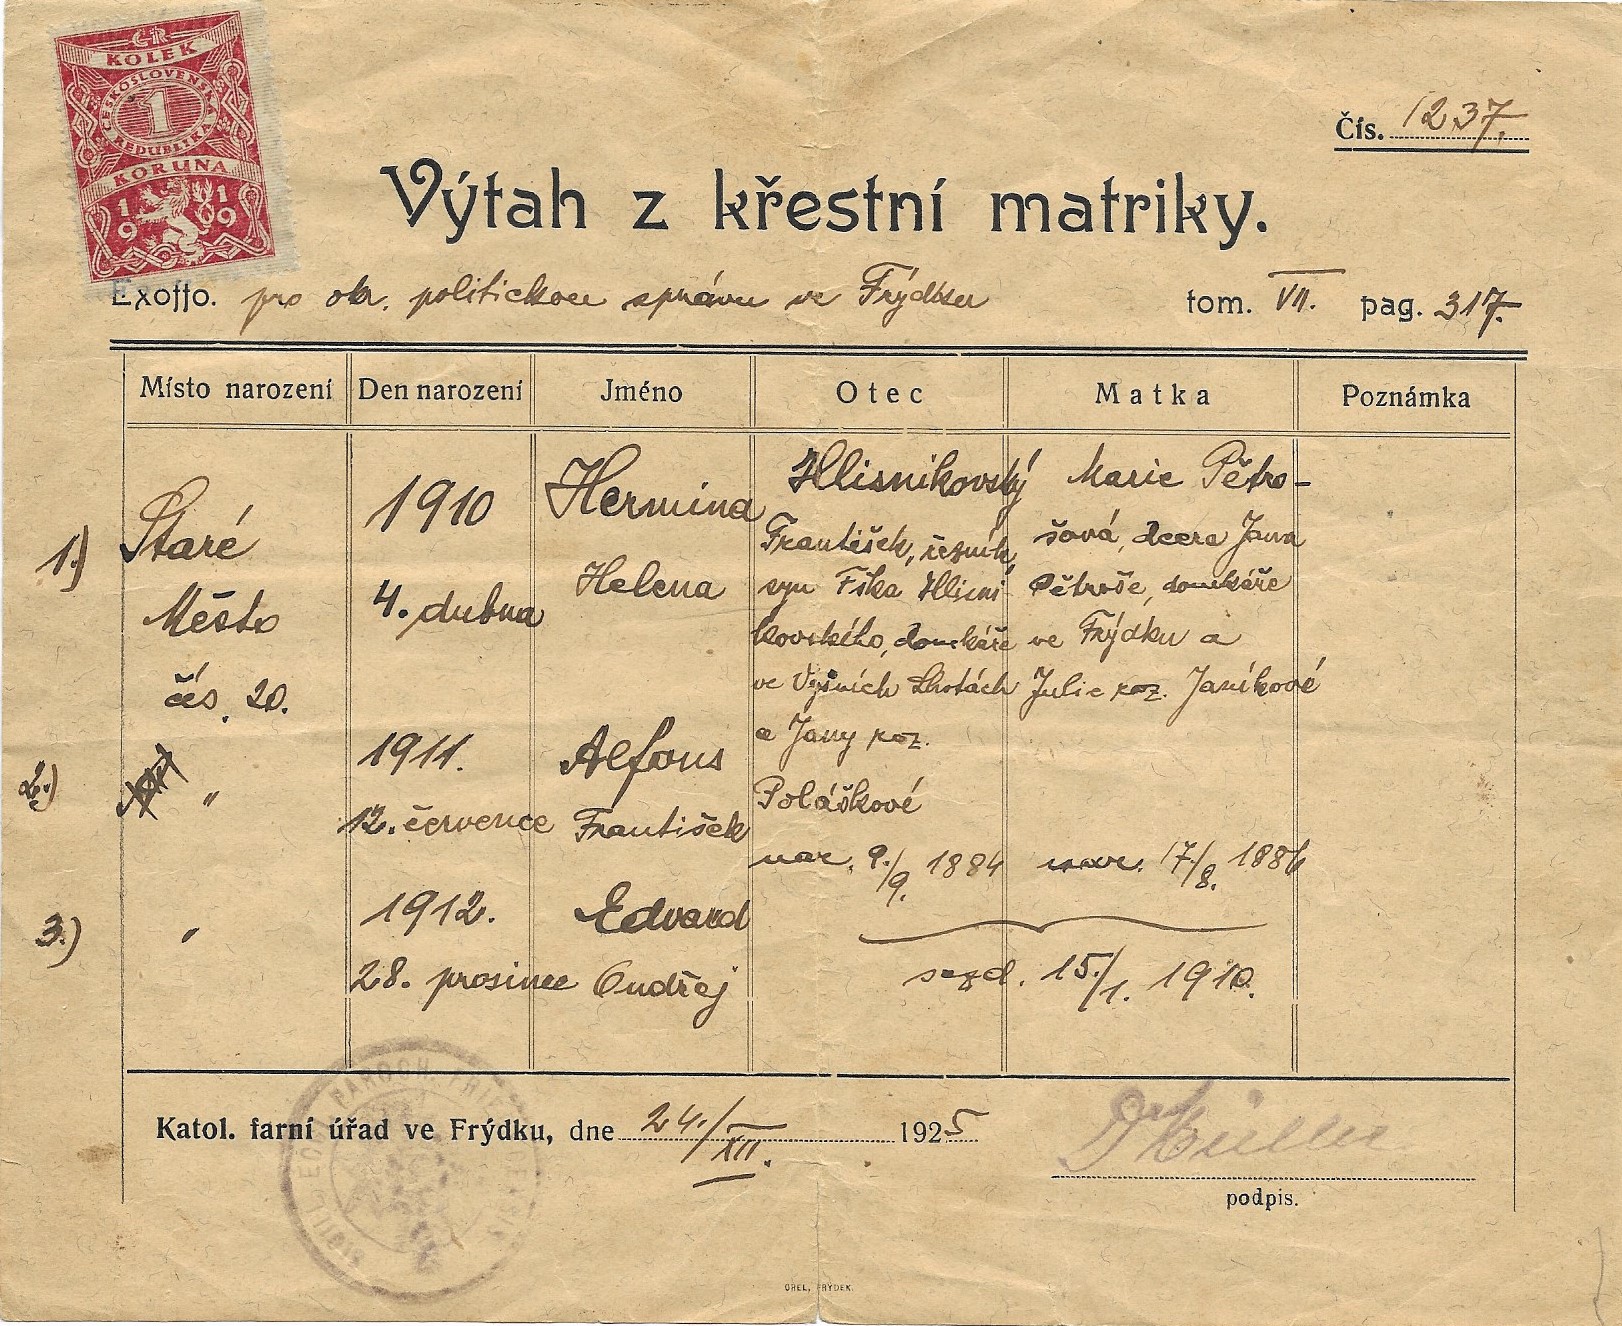 ČR
KOLEK
ČESKOSLOVENSKÁ
1
REPUBLIKA
KORUNA
1919
Čís. 1237.
Výtah z křestní matriky.
Exoffo. pro okr. politickou správu ve Frýdku tom. VII. pag. 317.
Místo narození Den narození Jméno Otec Matka Poznámka
1.) Staré
Město
čís. 20.
1910
4. dubna
Hermina
Helena
Hlisnikovský
František, řezník,
syn Fška Hlisni
kovského, domkáře
ve Vyšních Lhotách
a Jany roz.
Poláškové
nar. 9./9. 1884
Marie Pětro-
šová, dcera Jana
Pětroše, domkáře
ve Frýdku a
Julie roz. Janíkové
nar. 17/8. 1886
2.) "
1911.
12. července
Alfons
František
3.) "
1912.
28. prosince
Edvard
Ondřej
sezd. 15./1. 1910.
Katol. farní úřad ve Frýdku, dne 24./XII. 1925
podpis.
OREL, FRÝDEK.